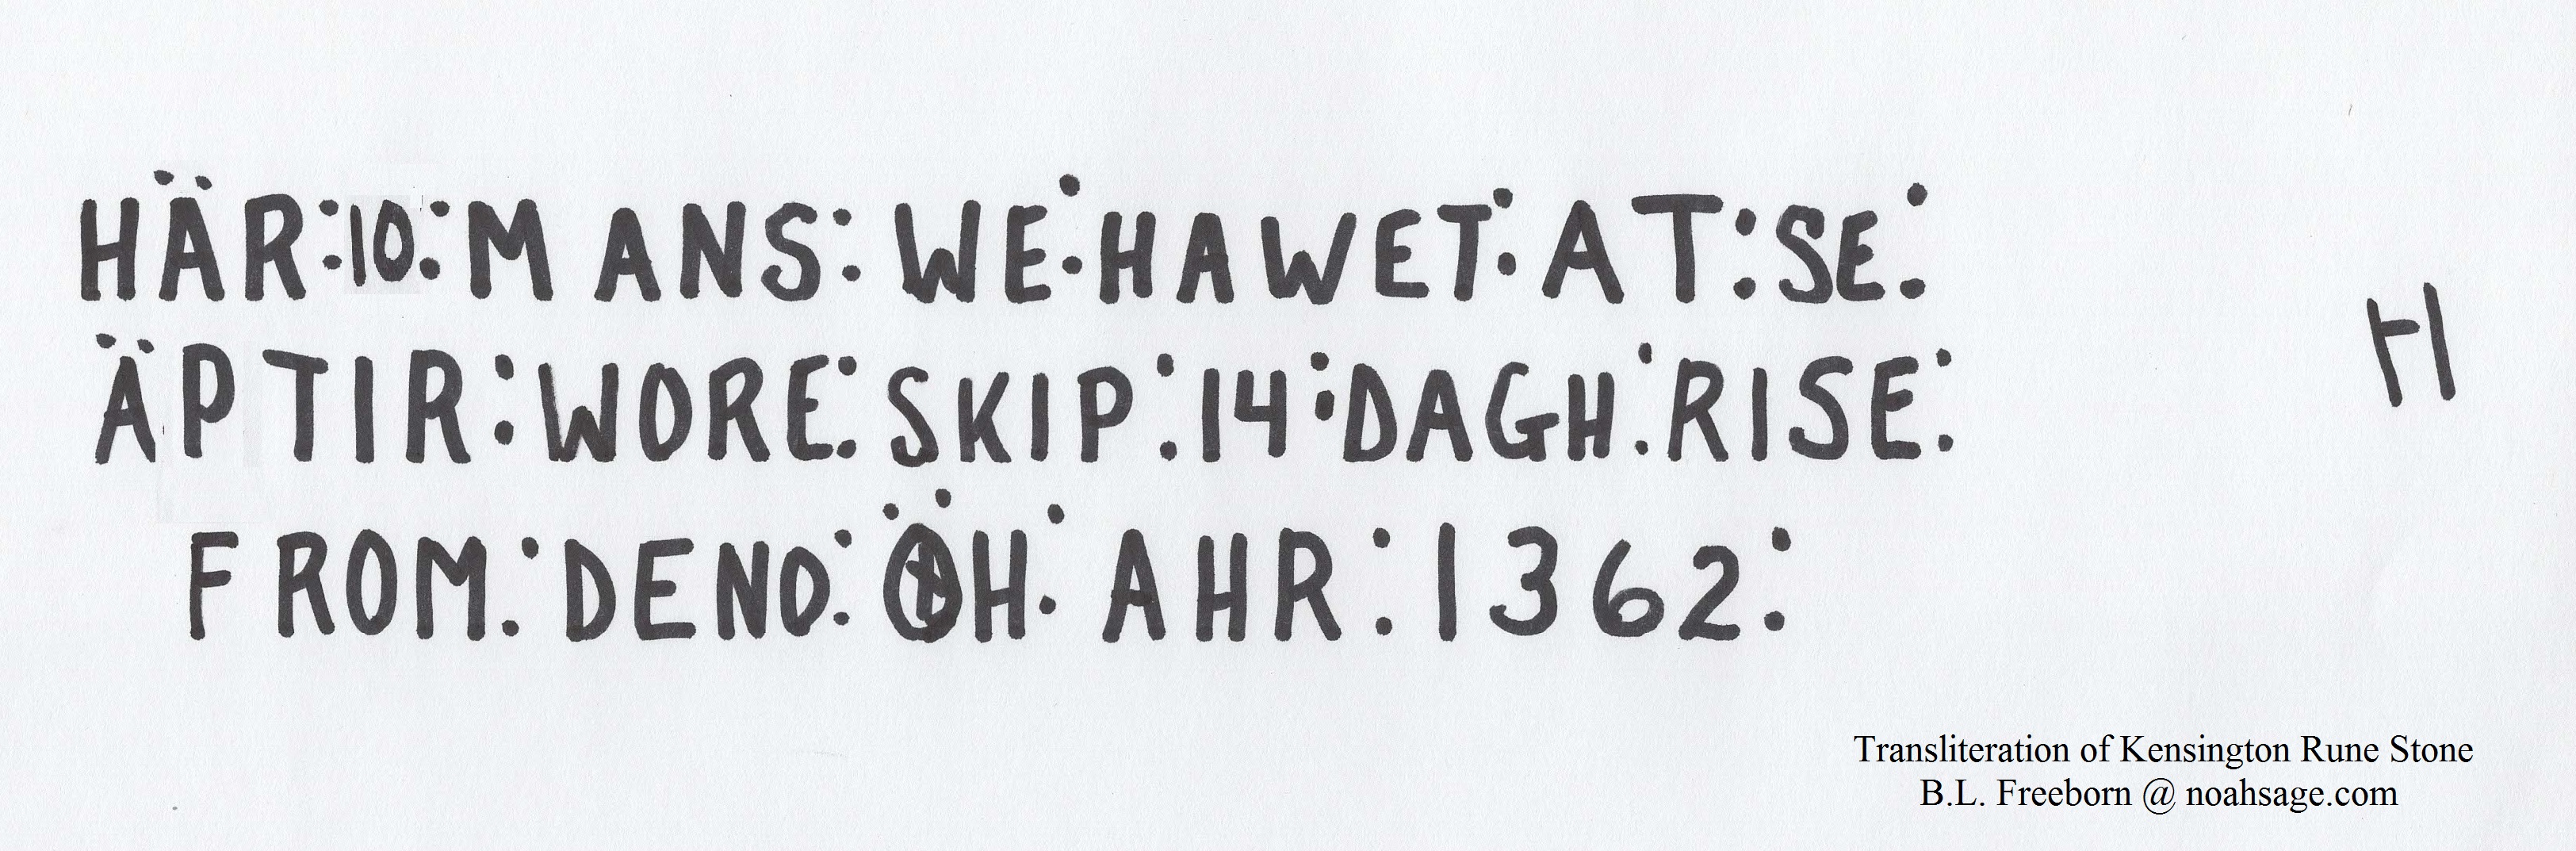 HÄR:10:MANS:WE:HAWET:AT:SE:
ÄPTIR:WORE:SKIP:14:DAGH:RISE:
FROM:DENO:ÖH:AHR:1362:
H
Transliteration of Kensington Rune Stone
B.L. Freeborn @ noahsage.com